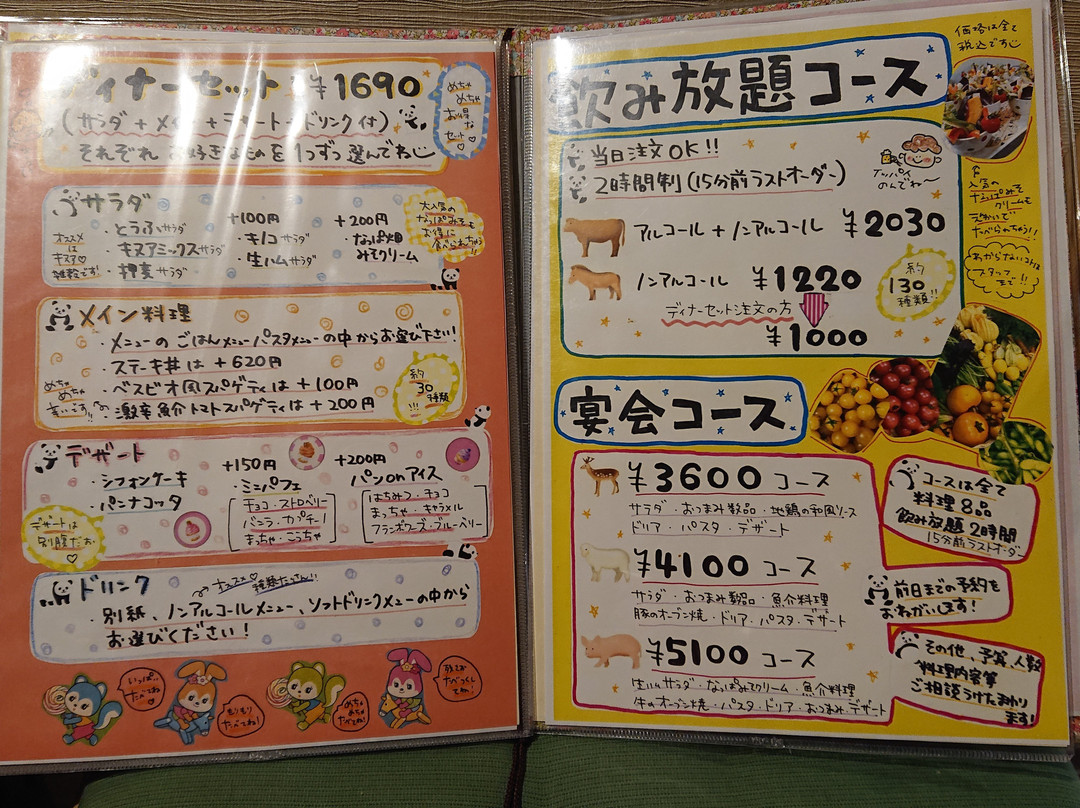 ディナーセット ¥1690
(サラダ+メイン+デザート+ドリンク付)
それぞれ お好きなものを1つずつ選んでね
めちゃ
めちゃ
お得な
セット♡
サラダ
・とうふサラダ
・キヌアミックスサラダ
・押麦サラダ
オススメ
は
キヌア♡
雑穀です!
+100円
・キノコサラダ
・生ハムサラダ
+200円
・なっぱ畑
みそクリーム
大人気の
なっぱみそも
お得に
食べられちゃう
メイン料理
・メニューの ごはんメニューパスタメニューの中からお選び下さい!
・ステーキ丼は +620円
・ベスビオ風スパゲティは +100円
・激辛魚介トマトスパゲティは +200円
めちゃ
めちゃ
辛いです!!
約
30
種類
!!!
デザート
・シフォンケーキ
・パンナコッタ
+150円
・ミニパフェ
チョコ・ストロベリー
バニラ・カプチーノ
まっちゃ・こうちゃ
+200円
パンonアイス
はちみつ・チョコ
まっちゃ・キャラメル
フランボワーズ・ブルーベリー
デザートは
別腹だお
♡
ドリンク
オススメ♡
種類たっさん!!
・別紙、ノンアルコールメニュー、ソフトドリンクメニューの中から
お選びください!
いっぱい
たべてね
もりもり
たべてね!
めちゃ
めちゃ
たべてね!
放ておたべつくしてね!
価格は全て
税込です
飲み放題コース
当日注文OK!!
2時間制(15分前ラストオーダー)
イッパイ
のんでね〜
アルコール+ノンアルコール ¥2030
ノンアルコール ¥1220
ディナーセット注文の方
¥1000
約
130
種類!!
人気の
なっぱみそ
クリームも
たべられちゃう!!
わからないコトは
スタッフ
まで!!
宴会コース
¥3600 コース
サラダ・おつまみ数品・地鶏の和風ソース
ドリア・パスタ・デザート
¥4100 コース
サラダ・おつまみ数品・魚介料理
豚のオーブン焼・ドリア・パスタ・デザート
¥5100 コース
生ハムサラダ・なっぱみそクリーム・魚介料理
牛のオーブン焼・パスタ・ドリア・おつまみ・デザート
コースは全て
料理8品
飲み放題2時間
15分前ラストオーダー
前日までの予約を
おねがいします!
その他、予算、人数
料理内容等
ご相談うけたまわり
ます!